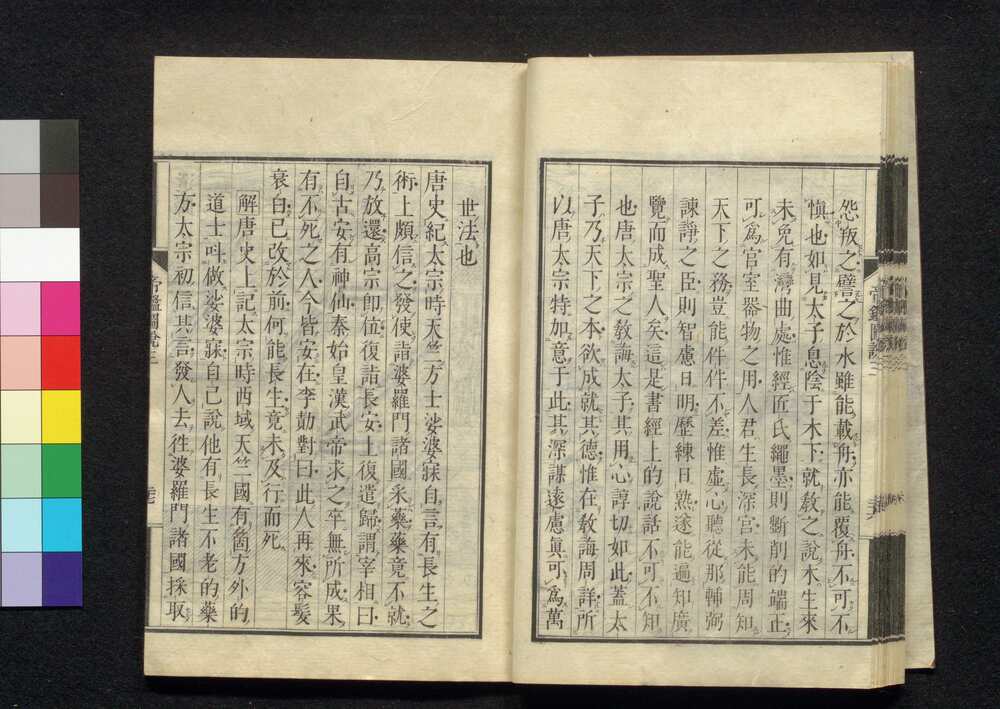 怨叛之譬之於水雖能載舟亦能覆舟不可不
愼也如見太子息陰于木下就敎之說木生來
未免有灣曲處惟經匠氏繩墨則斷削的端正
可爲官室器物之用人君生長深宮未能周知
天下之務豈能件件不差惟虛心聽從那輔弼
諫諍之臣則智慮日明歷練日熟遂能遍知廣
覽而成聖人矣這是書經上的說話不可不知
也唐太宗之敎誨太子其用心諄切如此蓋太
子乃天下之本欲成就其德惟在敎誨周詳所
以唐太宗特加意于此其深謀遠慮眞可爲萬
世法也
唐史紀太宗時天竺方士娑婆寐自言有長生之
術上頗信之發使詣婆羅門諸國采藥藥竟不就
乃放還高宗卽位復詣長安上復遣歸謂宰相曰
自古安有神仙秦始皇漢武帝求之卒無所成果
有不死之人今皆安在李勣對曰此人再來容髪
衰白已改於前何能長生竟未及行而死
解唐史上記太宗時西域天竺國有箇方外的
道士叫做娑婆寐自己說他有長生不老的藥
方太宗初信其言發人去往婆羅門諸國採取
帝鑑圖說三